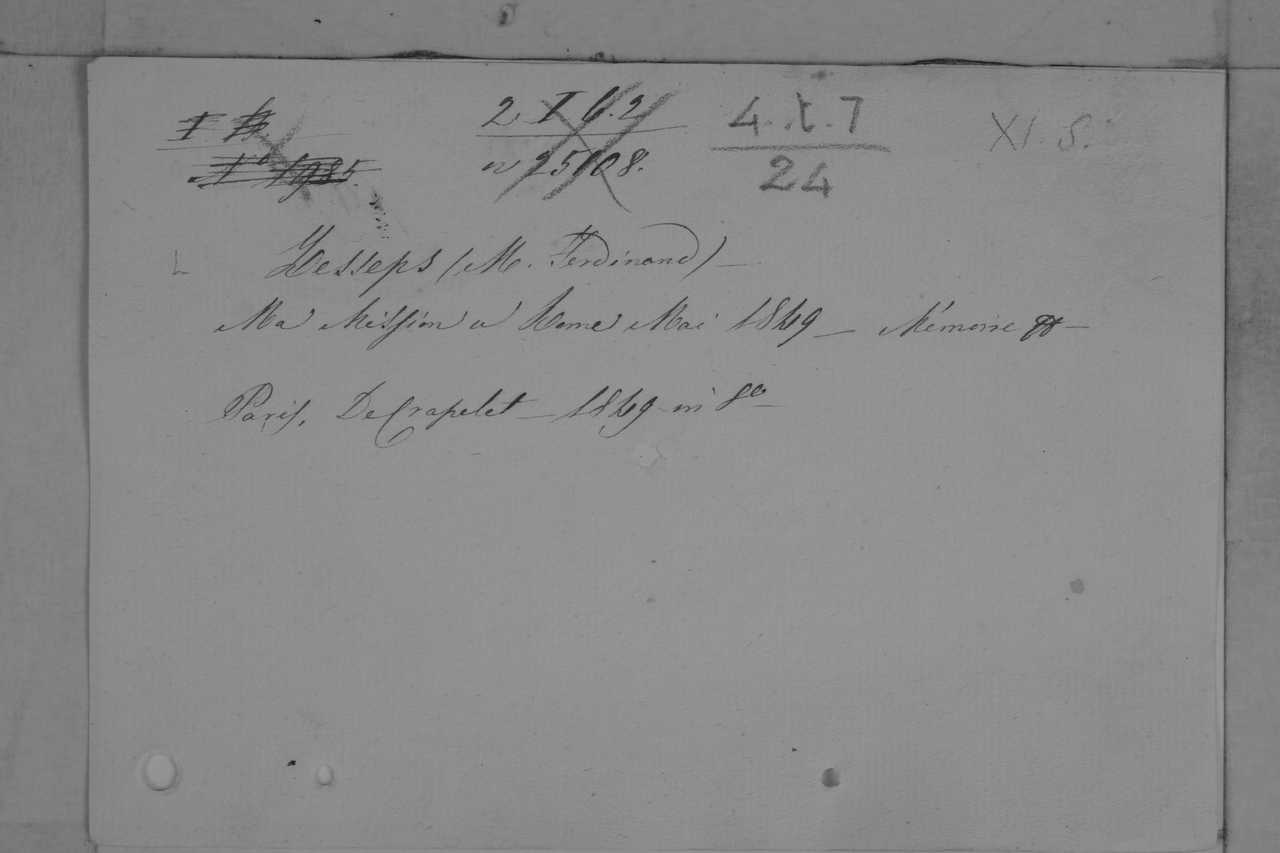 2 I 6.2
n 25108.
4.t.7
24
XI. S.
L
Lesseps (M. Ferdinand) —
Ma Mission a Rome Mai 1849 — Mémoire —
Paris, De Crapelet — 1849 in 8º —